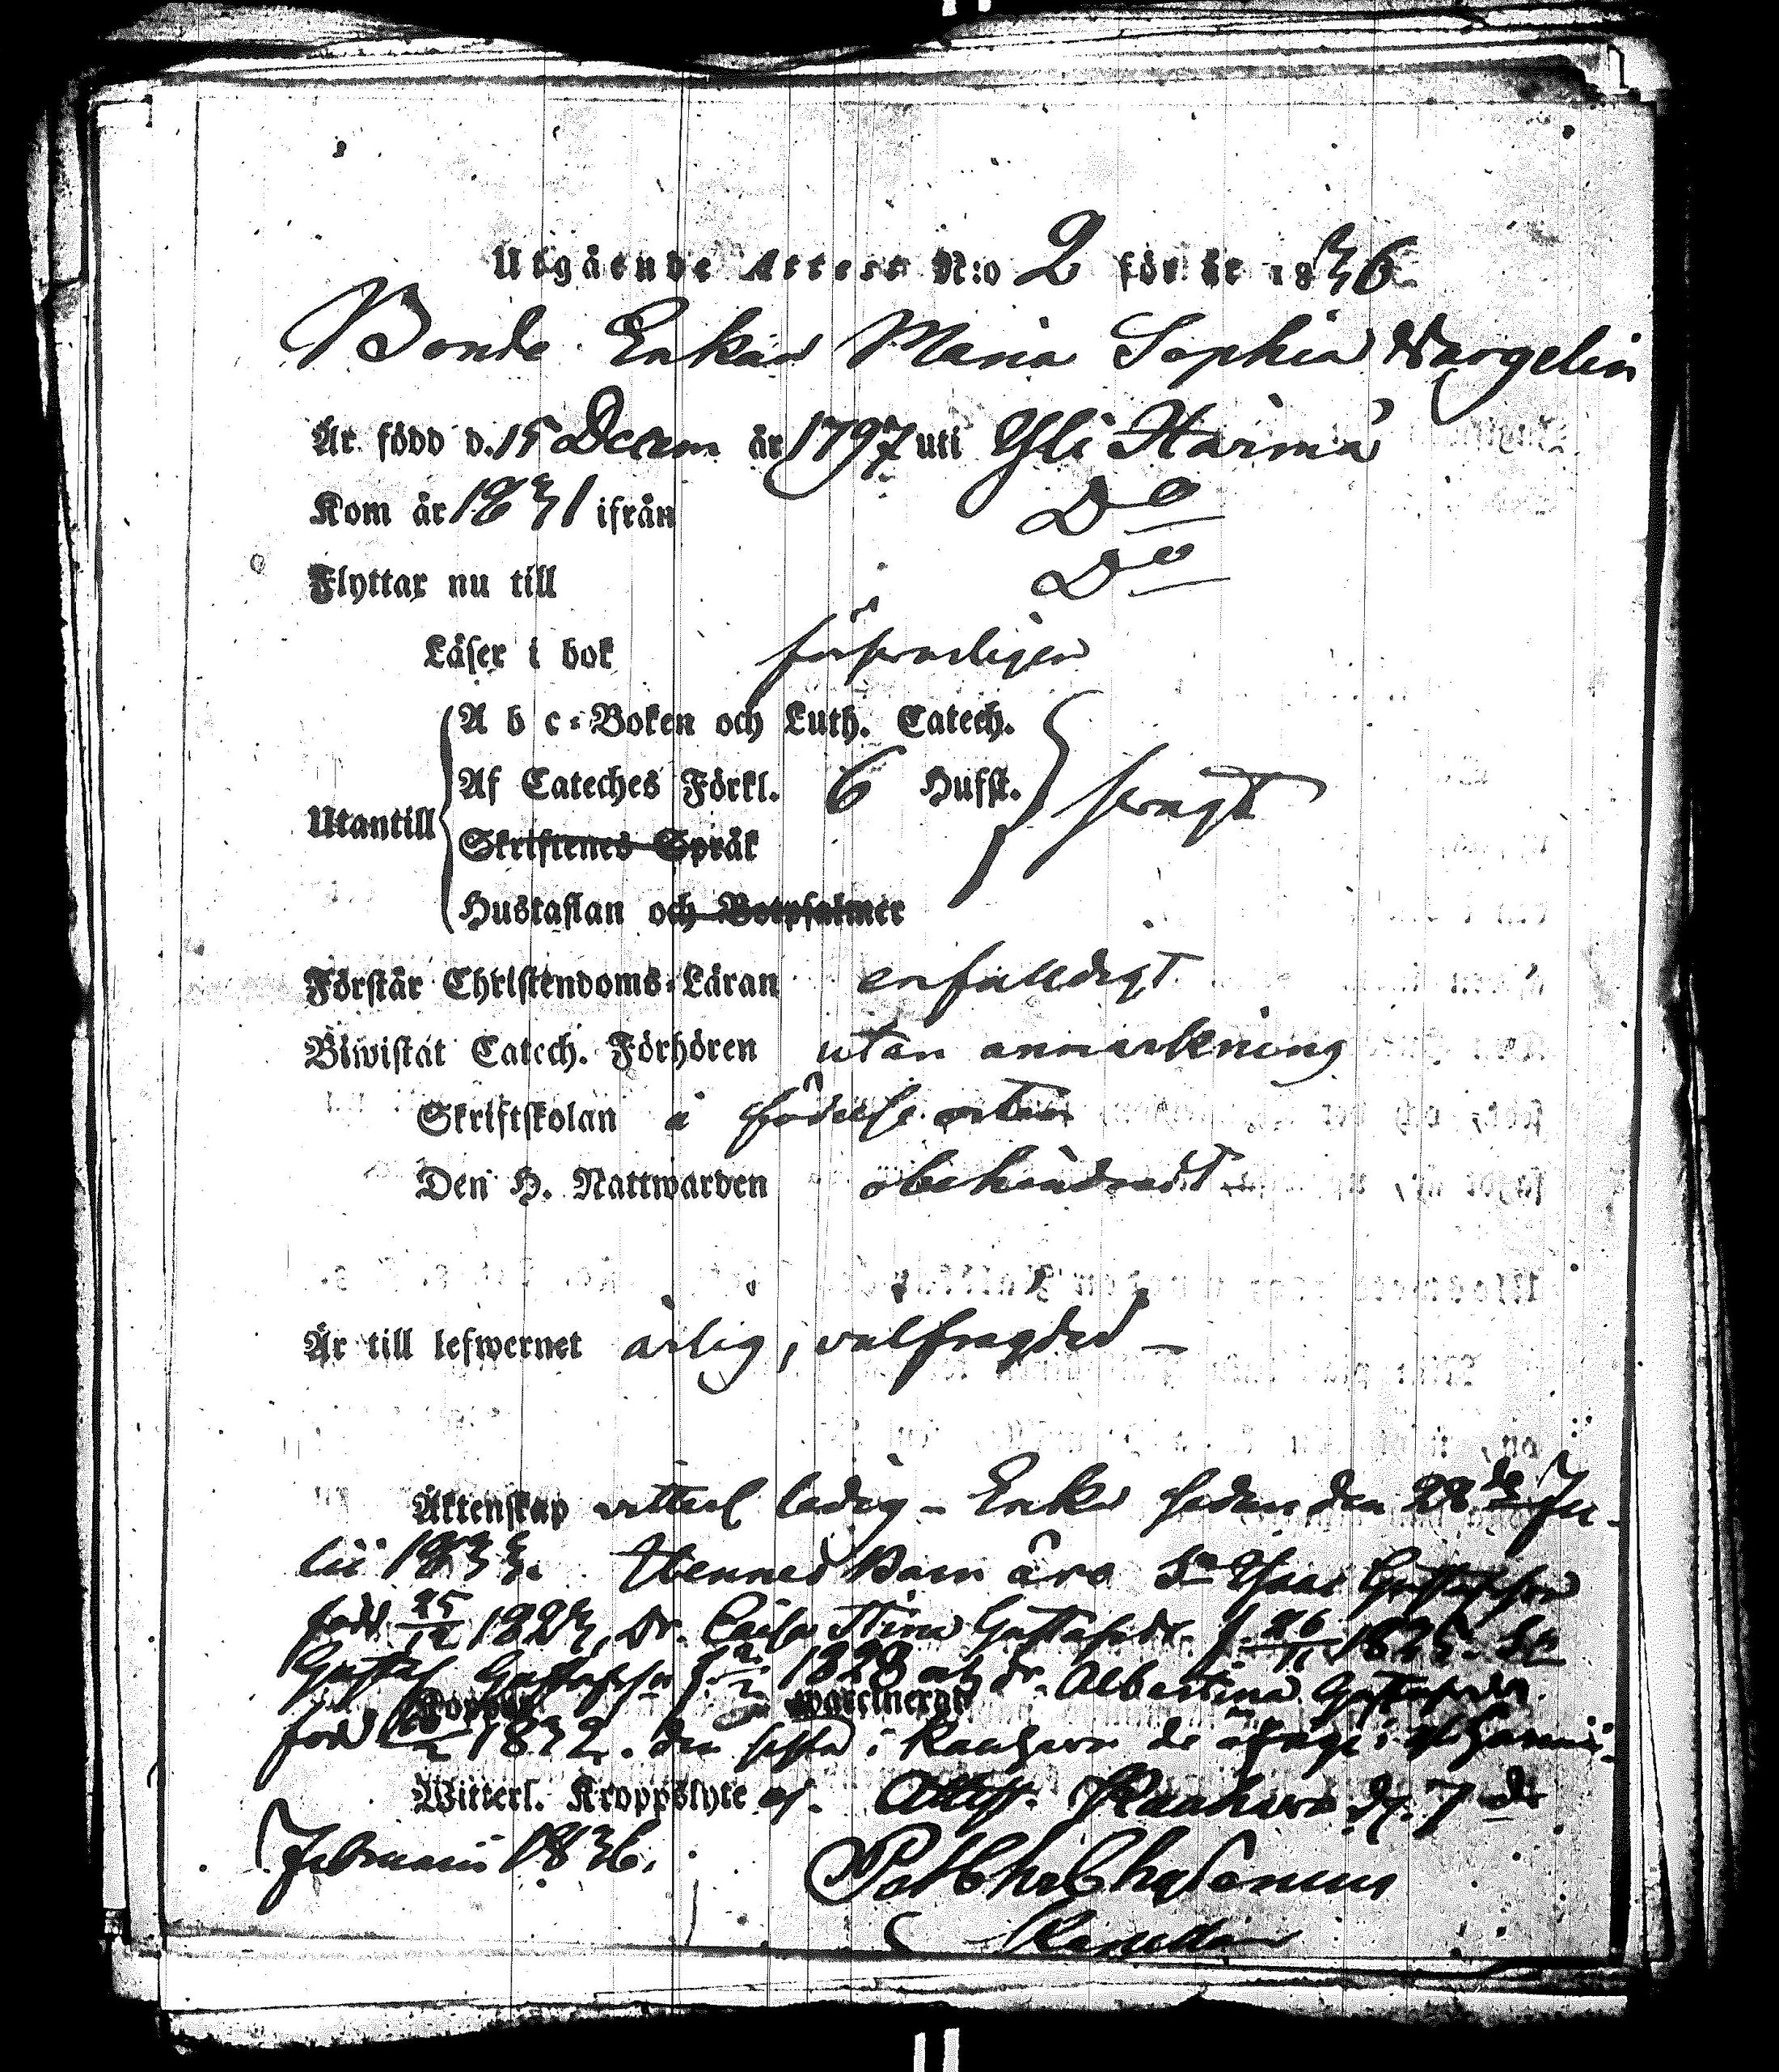 Utgående Attest N:o 2 för år 1836
Bonde Enkan Maria Sophia Wargelin
Är född d. 15 Decem år 1797 uti Yli Härmä
Kom år 1831 ifrån Do
Flyttar nu till Do
Läser i bok försvarligen
A b c-Boken och Luth. Catech.
Af Cateches Förkl. 6 Hufst.
Utantill svagt
Skriftenes Språk
Hustaflan och Botpsalmer
Förstår Christendoms-Läran enfalldigt
Biwistat Catech. Förhören utan anmärkning
Skriftskolan i födelse orten
Den H. Nattwarden obehindradt
Är till lefwernet ärlig, välfrägdad
Äktenskap vitterl ledig - Enka sedan den 28de Ju-
lii 1833. Hennes barn äro Sn Isaac Gustafsson
född 25/12 1823, Dr. Caisa Stina Gustafsdr. f. 26/11 1825. Sn
Gustaf Gustafsson f. 1828 och dr. Albertina Gustafsdr
född 1832. den sista i Kauhava de öfrige i Härmä.
Witterl. Kroppslyte ej. Attest. Kauhava d. 7de
Februarii 1836.